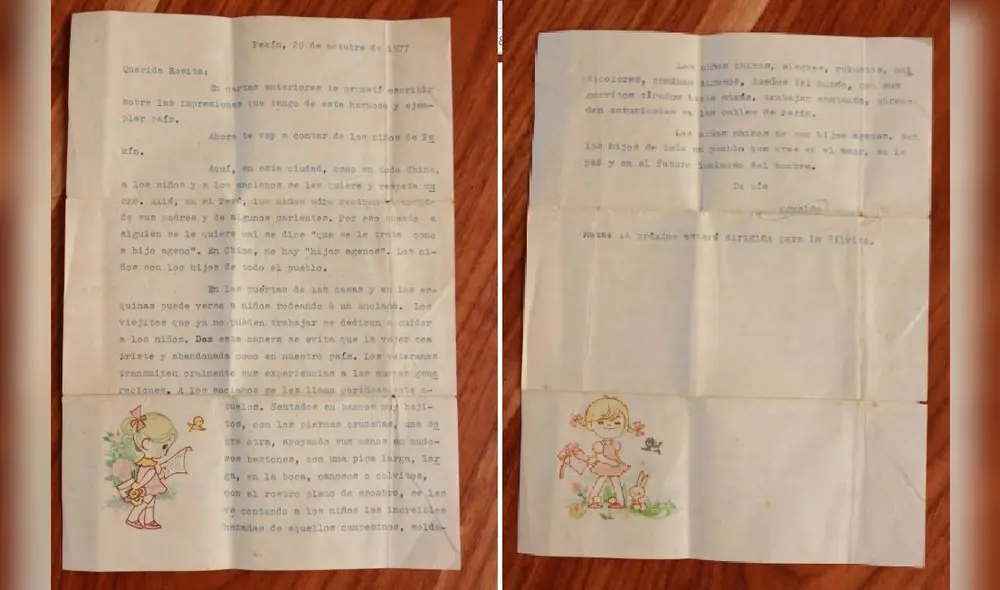 Pekín, 29 de octubre de 1977
Querida Rosita:
En cartas anteriores te prometí escribir
sobre las impresiones que tengo de este hermoso y ejem-
plar país.
Ahora te voy a contar de los niños de Pe
kín.
Aquí, en esta ciudad, como en toda China,
a los niños y a los ancianos se les quiere y respeta mu
cho. Allá, en el Perú, los niños sólo reciben el
de sus padres y de algunos parientes. Por eso cuando a
alguien se le quiere mal se dice "que se le trata como
a hijo ageno". En China, no hay "hijos agenos". Los ni-
ños son los hijos de todo el pueblo.
En las puertas de las casas y en las es-
quinas puede verse a niños rodeando a un anciano. Los
viejitos que ya no pueden trabajar se dedican a cuidar
a los niños. Des esta manera se evita que la vejez sea
triste y abandonada como en nuestro país. Los veteranos
transmiten oralmente sus experiencias a las nuevas gene
raciones. A los ancianos se les llama cariñosamente a-
buelos. Sentados en bancos muy baji-
tos, con las piernas cruzadas, una so
bre otra, apoyando sus manos en nudo-
sos bastones, con una pipa larga, lar
ga, en la boca, canosos o calvitos,
con el rostro plano de asombro, se les
ve contando a los niños las increíbles
hazañas de aquellos campesinos, solda-
Los niños chinos, alegres, robustos,
ticolores, dueños del mundo, con sus
gorritos tirados hacia atrás, trabajan cantando, apren-
den entusiastas en las calles de Pekín.
Los niños chinos no son hijos agenos. Son
los hijos de todo un pueblo que cree en el amor, en la
paz y en el futuro luminoso del hombre.
Tu tío
Nota: la próxima estará dirigida para la Silvita.